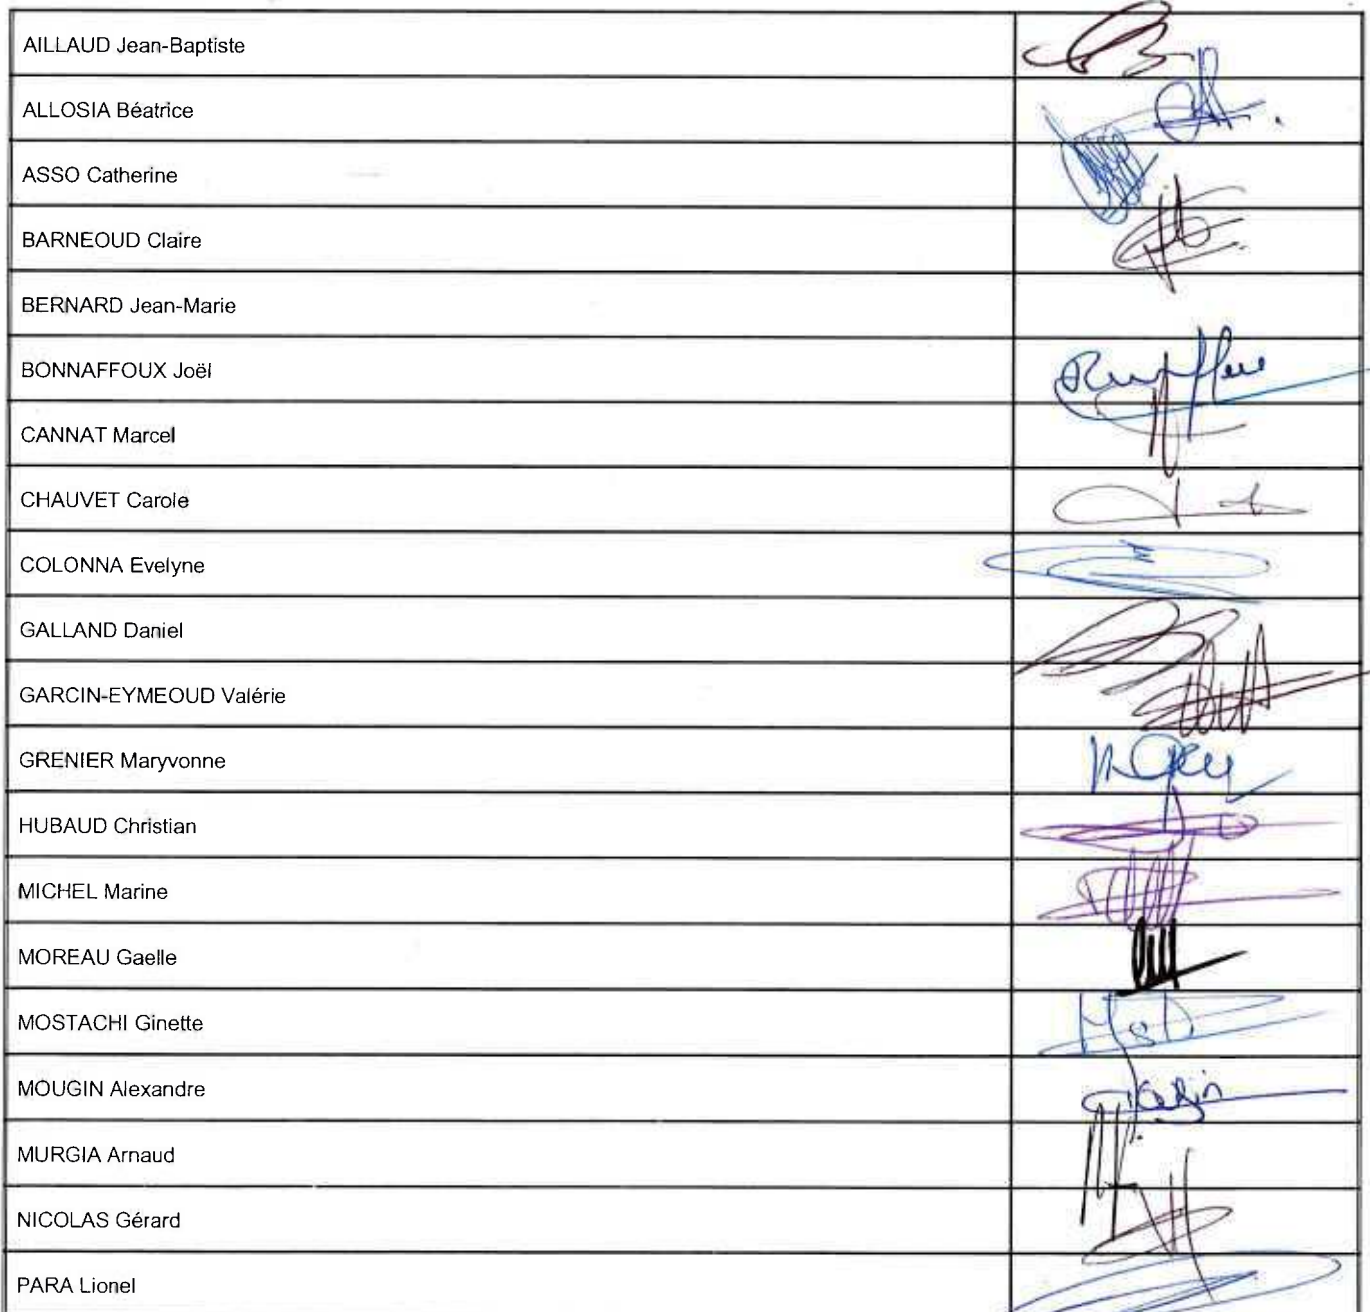 AILLAUD Jean-Baptiste
ALLOSIA Béatrice
ASSO Catherine
BARNEOUD Claire
BERNARD Jean-Marie
BONNAFFOUX Joël
CANNAT Marcel
CHAUVET Carole
COLONNA Evelyne
GALLAND Daniel
GARCIN-EYMEOUD Valérie
GRENIER Maryvonne
HUBAUD Christian
MICHEL Marine
MOREAU Gaelle
MOSTACHI Ginette
MOUGIN Alexandre
MURGIA Arnaud
NICOLAS Gérard
PARA Lionel